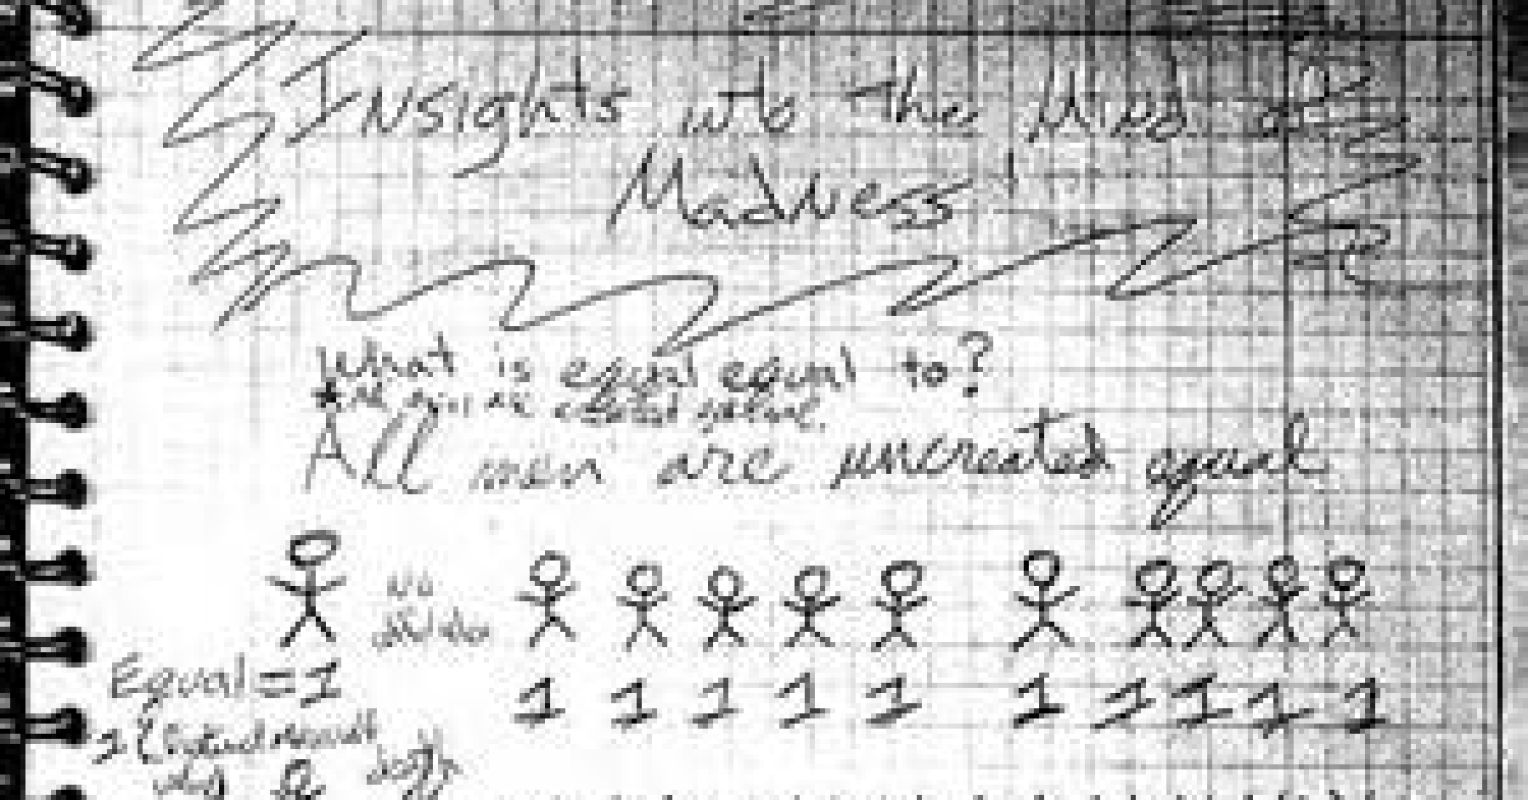 Insights into the Mind of
Madness!
What is equal equal to?
All men are uncreated equal
No
Equal = 1
1 1 1 1 1 1 1 1 1 1
1